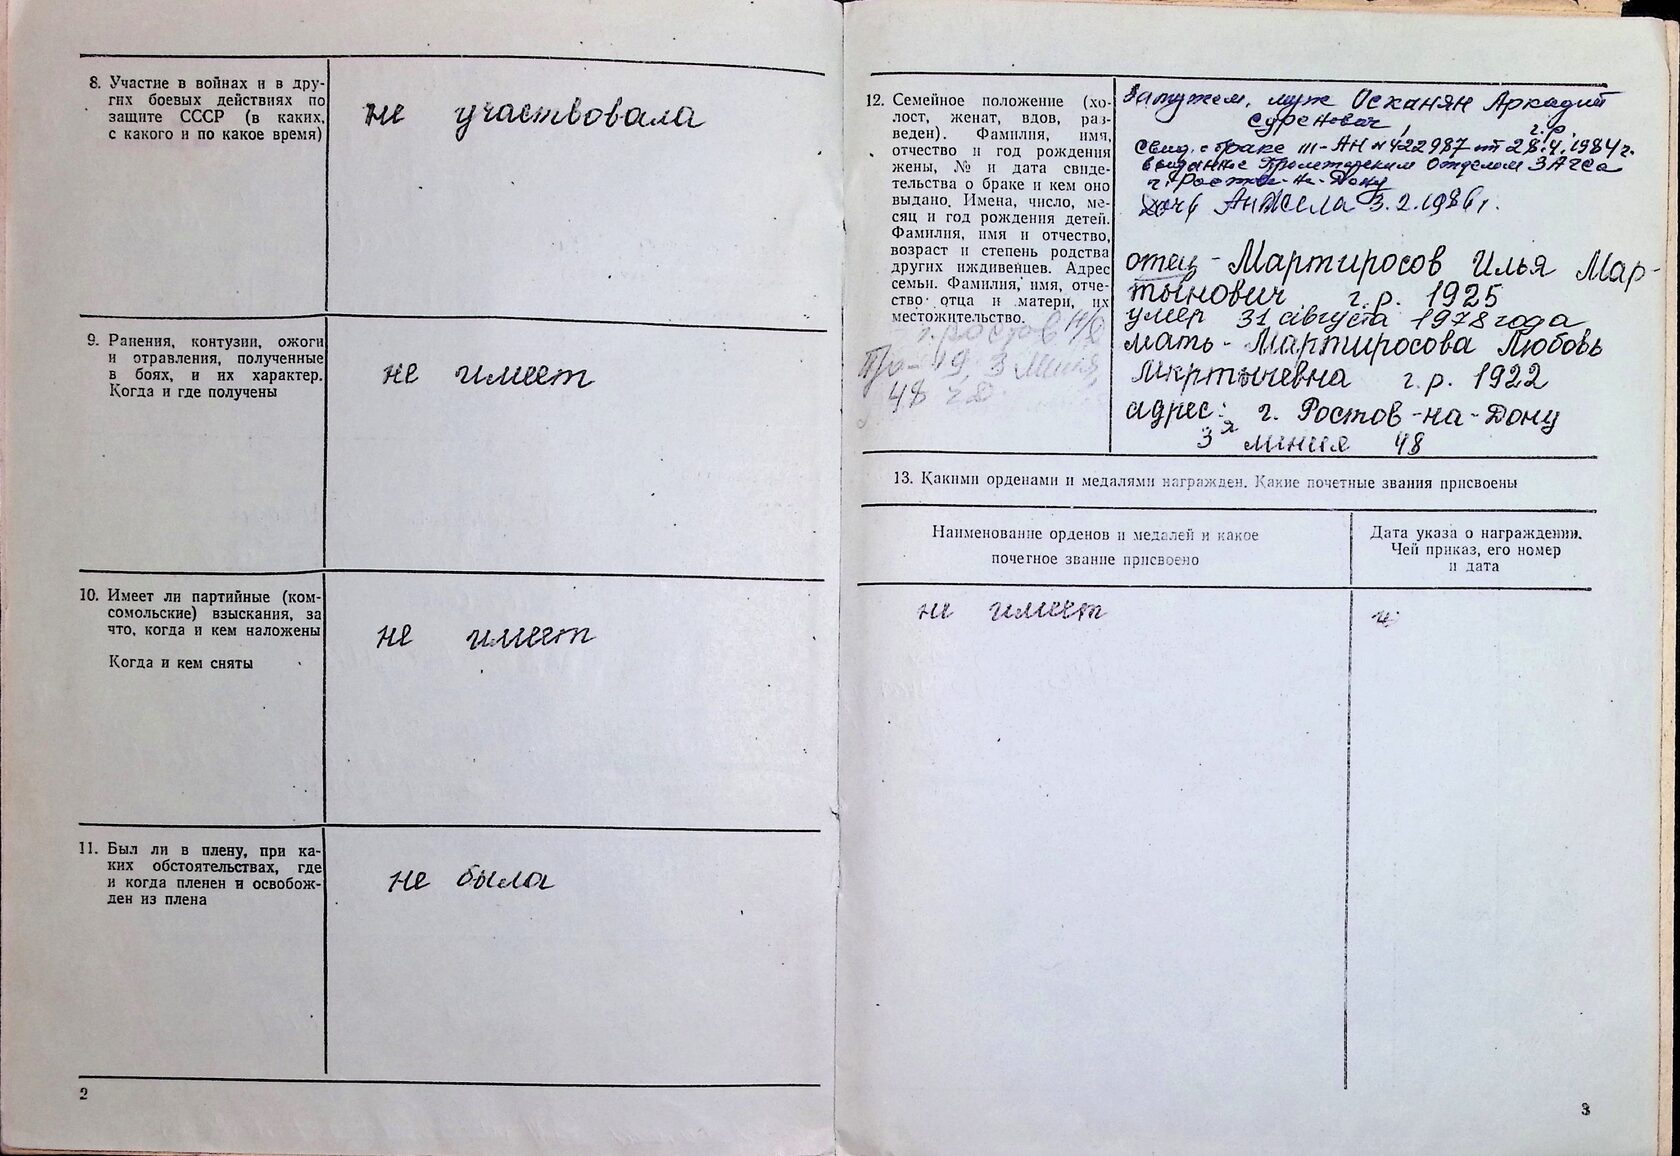 8. Участие в войнах и в дру-
гих боевых действиях по
защите СССР (в каких,
с какого и по какое время)
не участвовала
9. Ранения, контузии, ожоги
и отравления, полученные
в боях, и их характер.
Когда и где получены
не имеет
10. Имеет ли партийные (ком-
сомольские) взыскания, за
что, когда и кем наложены
Когда и кем сняты
не имеет
11. Был ли в плену, при ка-
ких обстоятельствах, где
и когда пленен и освобож-
ден из плена
не была
2
12. Семейное положение (хо-
лост, женат, вдов, раз-
веден). Фамилия, имя,
отчество и год рождения
жены, № и дата свиде-
тельства о браке и кем оно
выдано. Имена, число, ме-
сяц и год рождения детей.
Фамилия, имя и отчество,
возраст и степень родства
других иждивенцев. Адрес
семьи. Фамилия, имя, отче-
ство отца и матери, их
местожительство.
г. Ростов н/Д
49, 3 линия,
48
Замужем, муж Осканян Аркадий
Суренович, г.р.
свид. о браке III-АН № 422987 от 28.4.1984 г.
выданное Пролетарским отделом ЗАГСа
г. Ростова-на-Дону
дочь Анжела 3.2.1986 г.
отец - Мартиросов Илья Мар-
тынович г.р. 1925
умер 31 августа 1978 года
мать - Мартиросова Любовь
Мкртычевна г.р. 1922
адрес: г. Ростов-на-Дону
3я линия 48
13. Какими орденами и медалями награжден. Какие почетные звания присвоены
Наименование орденов и медалей и какое
почетное звание присвоено
Дата указа о награждении.
Чей приказ, его номер
и дата
не имеет
3